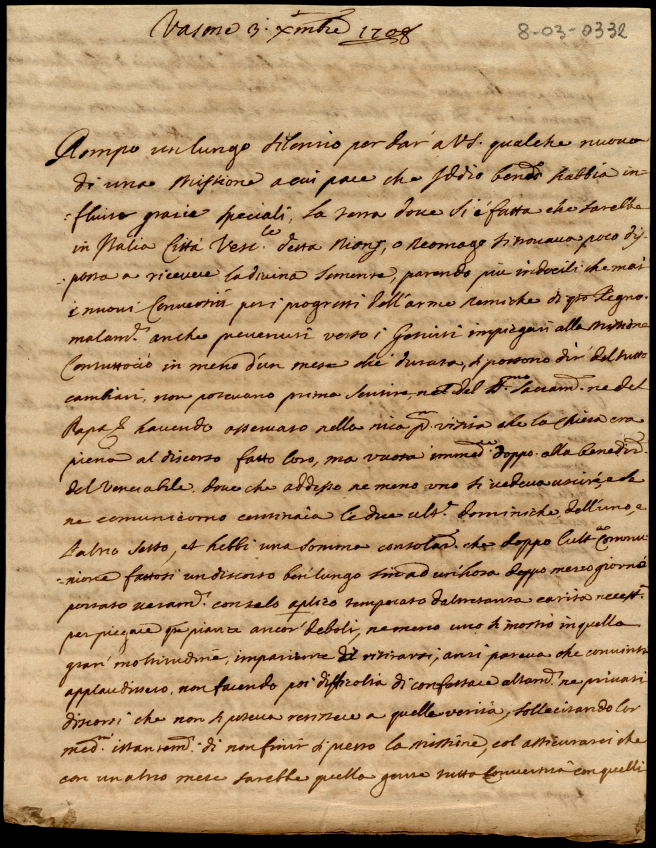 Vasone 3. Xmbre 1708
8-03-0332
Rompo un lungo silenzio per dar' a VS. qualche nuova
di una Missione a cui pare che Iddio bened.o habbia in=
=fluito grazie speciali, La terra dove si è fatta che sarebbe
in Italia Città Vesc.le detta Nions, o Neomago si trovava poco dis=
=posta a ricevere la divina semente, parendo più indocili che mai
i nuovi Convertiti pe i progressi dell'arme nemiche di q.to Regno.
malam.te anche prevenuti verso i Gesuiti impiegati alla Missione
Contuttociò in meno d'un mese ch'è durata, si possono dir' del tutto
cambiati, non potevano prima sentire, nè del S.mo Sacram.to ne del
Papa, havendo osservato nella mia p.ma visita che la Chiesa era
piena al discorso fatto loro, ma vuota immed.te doppo alla benediz.e
del Venerabile, dove che addesso ne meno uno si vedeva uscire, e se
ne comunicorno centinaia le due ult.e dominiche dell'uno, e
l'altro sesso, et hebbi una somma consolaz.e che doppo l'ult.a Comuni=
=nione fattosi un discorso ben' lungo sin ad un' hora doppo mezo giorno
portato veram.te con zelo aplico temperato d'altretanta carità necess.a
per piegare q.te piante ancor' deboli, ne meno uno si mostrò in quella
gran' moltitudine, impaziente di ritirarsi, anzi pareva che convinti
applaudissero, non facendo poi difficoltà di confessare altam.te ne privati
discorsi che non si poteva resistere a quelle verità, sollecitando lor
med.mi istantem.te di non finir sì presto la Missione, col assicurarci che
con un altro mese sarebbe quella gente tutta Convertita con quelli